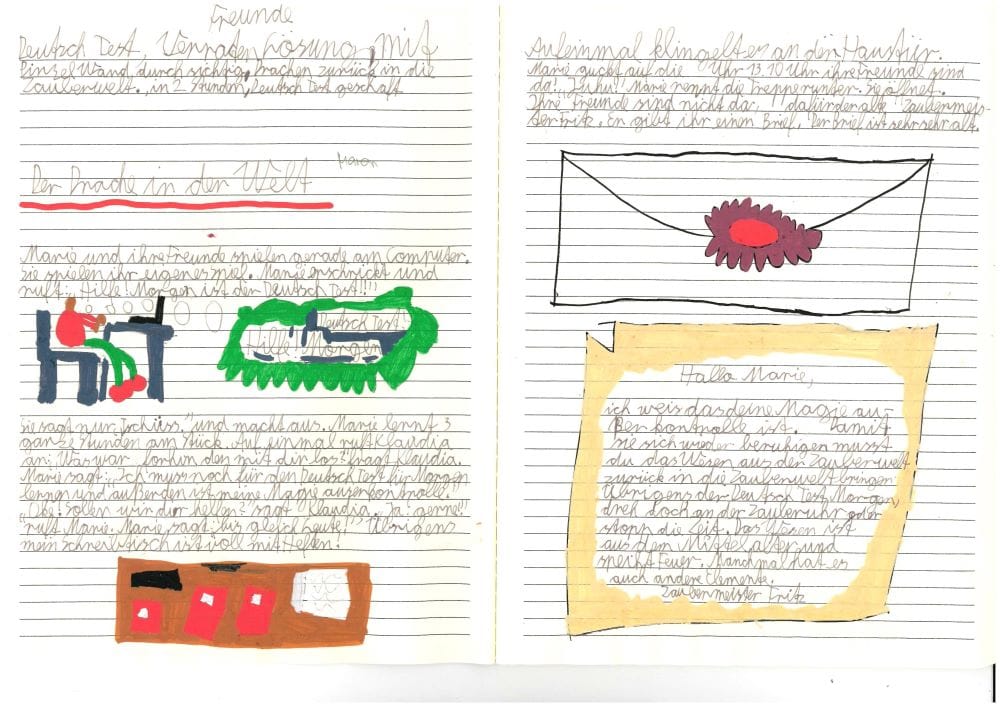 Freunde
Deutsch Test, Verraten Lösung, mit
Pinsel Wand durchsichtig, Drachen zurück in die
Zauberwelt., in 2 Stunden, Deutsch Test geschaft
Der Drache in der Welt
Marie und ihre Freunde spielen gerade am Computer.
Sie spielen ihr eigenes spiel. Marie erschrickt und
ruft: „Hilfe! Morgen ist der Deutsch Test!!"
Deutsch Test
Hilfe! Morgen
Sie sagt nur: „Tschüss." und macht aus. Marie lernt 3
ganze stunden am stück. Auf einmal ruft Klaudia
an: Was war forhin den mit dir los? fragt Klaudia.
Marie sagt: „Ich muss noch für den Deutsch Test für Morgen
lernen und außerden ist meine Magie auserkontrolle!
"Oke! sollen wir dir helfen?" sagt Klaudia. „Ja! gerne!"
ruft Marie. Marie sagt: „bis gleich Leute!" Übrigens
mein schreibtisch ist voll mit Hefen!
Aufeinmal klingelt es an der Haustür.
Marie guckt auf die Uhr 13.10 Uhr ihre freunde sind
da! „Juhu! Marie rennt die Treppe runter. Sie öffnet.
Ihre Freunde sind nicht da, dafür der alte Zaubermeis-
ter Fritz. Er gibt ihr einem Brief. Der Brief ist sehr sehr alt.
Hallo Marie,
ich weis das deine Magie au-
ßer kontrolle ist. Damit
sie sich wieder beruhigen musst
du das Wesen aus der Zauberwelt
zurück in die Zauberwelt bringen.
Übrigens der Deutsch Test Morgen
dreh doch an der Zauberuhr oder
stopp die Zeit. Das Wesen ist
aus dem Mittelalter und
speiht Feuer. Manchmal hat es
auch andere Elemente.
Zaubermeister Fritz